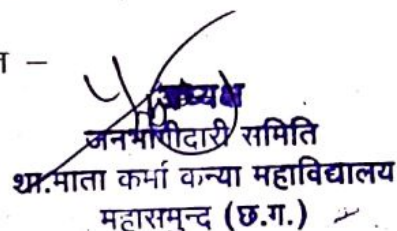 न –
अध्यक्ष
जनभागीदारी समिति
शा.माता कर्मा कन्या महाविद्यालय
महासमुन्द (छ.ग.)